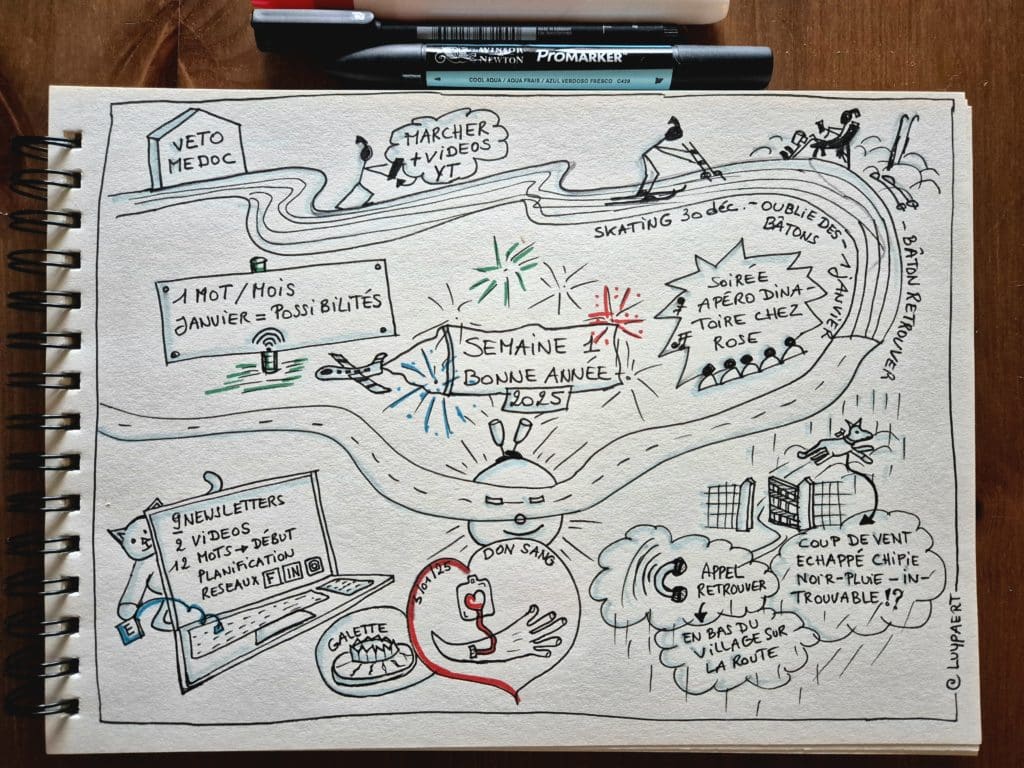 WINSOR
NEWTON
PROMARKER™
COOL AQUA / AQUA FRAIS / AZUL VERDOSO FRESCO C429
VETO
MEDOC
MARCHER
+ VIDEOS
YT
SKATING 30 déc. - OUBLIE DES
BÂTONS
- 1 JANVIER
- BÂTON RETROUVER
1 MOT / MOIS
JANVIER = POSSIBILITÉS
SEMAINE 1
BONNE ANNÉE
2025
SOIREE
APÉRO DINA-
TOIRE CHEZ
ROSE
9 NEWSLETTERS
2 VIDEOS
12 MOTS → DÉBUT
PLANIFICATION
RESEAUX F IN
E
GALETTE
DON SANG
3/01/25
APPEL
RETROUVER
EN BAS DU
VILLAGE SUR
LA ROUTE
COUP DE VENT
ECHAPPÉ CHIPIE
NOIR-PLUIE-IN-
TROUVABLE !?
© LUYPAERT